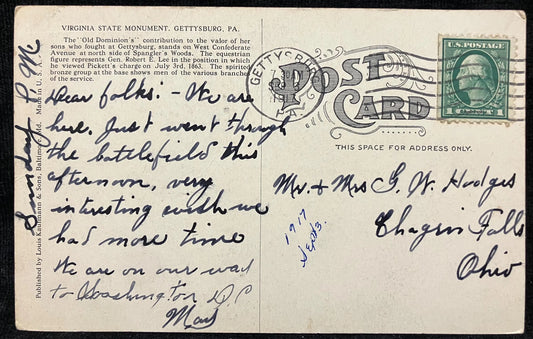 VIRGINIA STATE MONUMENT, GETTYSBURG, PA.
The "Old Dominion's" contribution to the valor of her
sons who fought at Gettysburg, stands on West Confederate
Avenue at north side of Spangler's Woods. The equestrian
figure represents Gen. Robert E. Lee in the position in which
he viewed Pickett's charge on July 3rd, 1863. The spirited
bronze group at the base shows men of the various branches
of the service.
Sunday P.M
Published by Louis Kaufmann & Sons, Baltimore, Md. Made in U.S.A.
Dear folks:- We are
here. Just went through
the battlefield this
afternoon, very
interesting wish we
had more time
We are on our way
to Washington D.C
May
GETTYSBURG
PA.
U.S. POSTAGE
POST
CARD
THIS SPACE FOR ADDRESS ONLY.
Mr. + Mrs G. W. Hodges
Chagrin Falls
Ohio
1917
Sept 3.